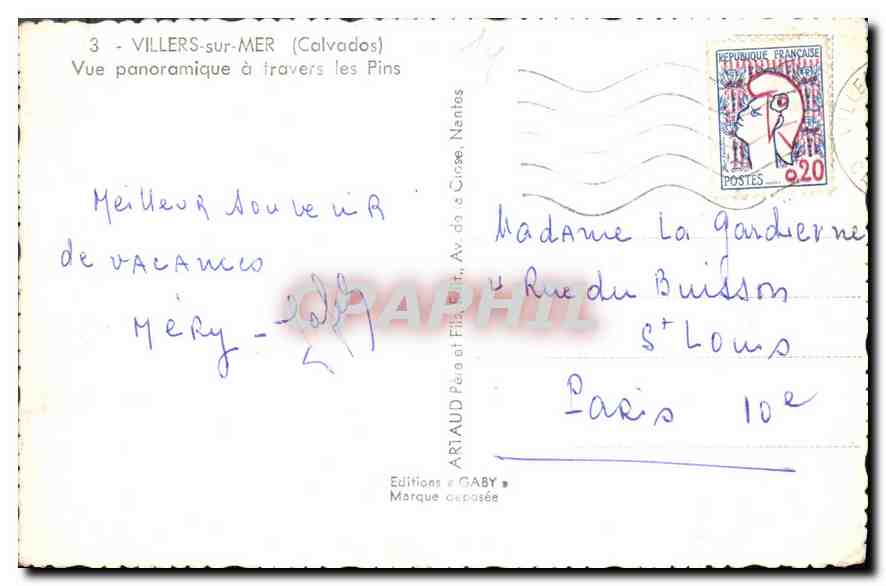 3 - VILLERS-sur-MER (Calvados)
Vue panoramique à travers les Pins
REPUBLIQUE FRANÇAISE
POSTES
0,20
Meilleur Souvenir
de VACANCES
Méry -
ARTAUD Père et Fils, Édit., Av. de la Close, Nantes
Madame La Gardienne
Rue du Buisson
St Louis
Paris 10e
Editions « GABY »
Marque déposée
CPAPHIL